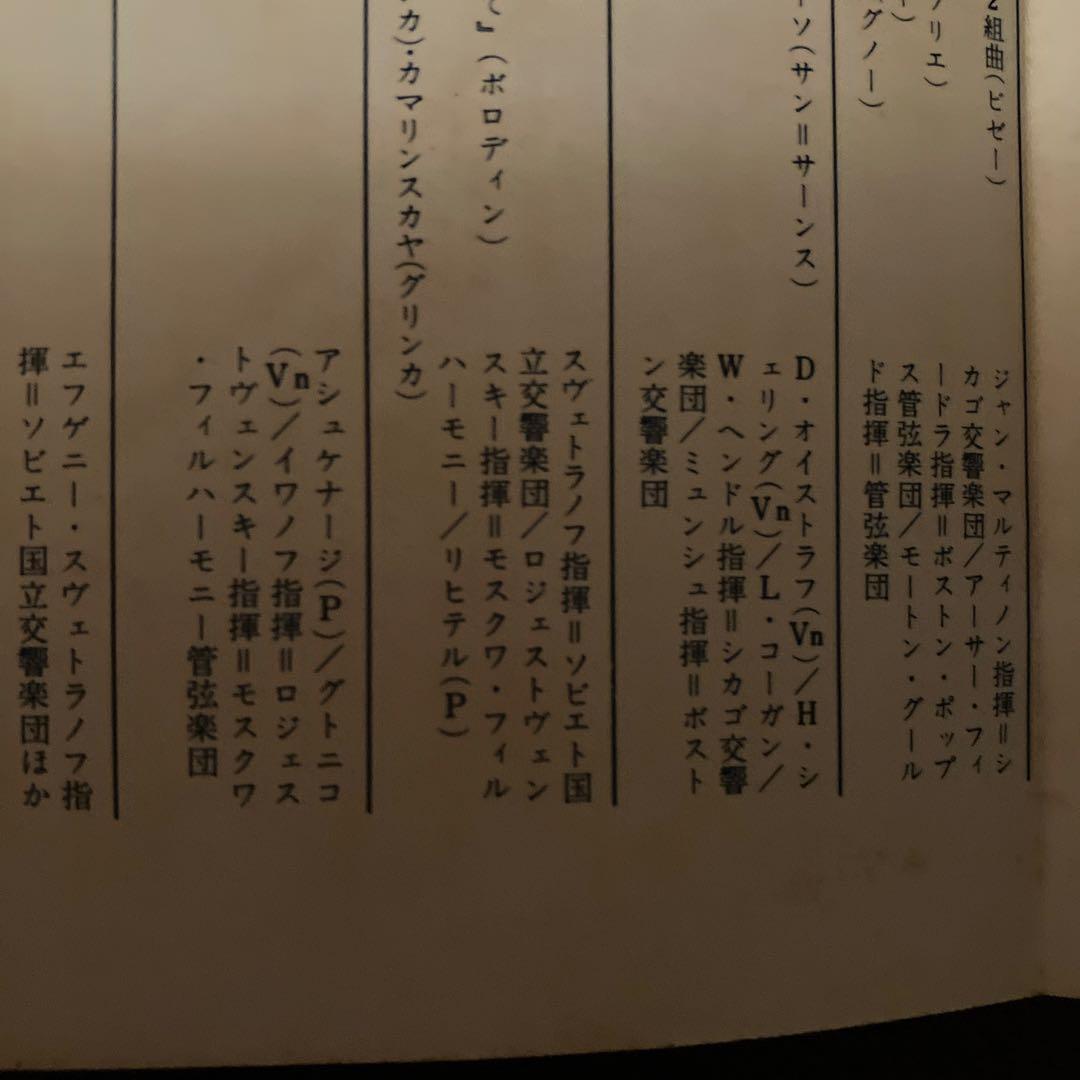 2組曲(ビゼー)
リエ)
グノー)
ジャン・マルティノン指揮＝シ
カゴ交響楽団/アーサー・フィ
ードラ指揮＝ボストン・ポップ
ス管弦楽団/モートン・グール
ド指揮＝管弦楽団
ーソ(サン＝サーンス)
D・オイストラフ(Vn)/H・シ
ェリング(Vn)/L・コーガン/
W・ヘンドル指揮＝シカゴ交響
楽団/ミュンシュ指揮＝ボスト
ン交響楽団
て』(ボロディン)
カ)・カマリンスカヤ(グリンカ)
スヴェトラノフ指揮＝ソビエト国
立交響楽団/ロジェストヴェン
スキー指揮＝モスクワ・フィル
ハーモニー/リヒテル(P)
アシュケナージ(P)/グトニコ
(Vn)/イワノフ指揮＝ロジェス
トヴェンスキー指揮＝モスクワ
・フィルハーモニー管弦楽団
エフゲニー・スヴェトラノフ指
揮＝ソビエト国立交響楽団ほか